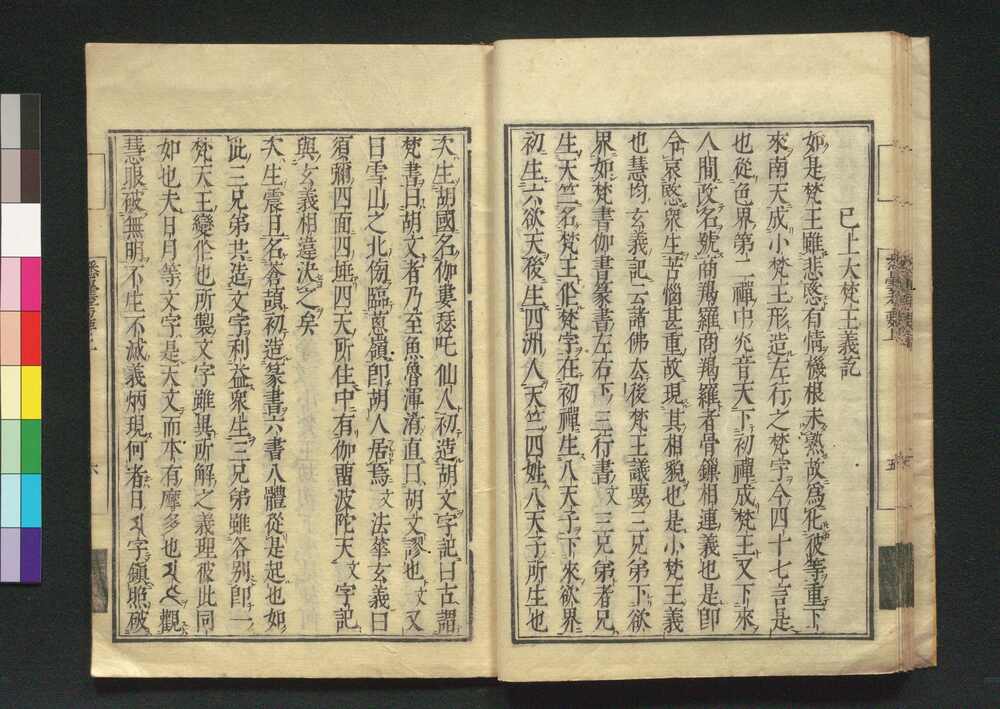 已上大梵王義記
如是梵王雖悲愍有情機根未熟故爲化彼等重下
來南天成小梵王形造左行之梵字今四十七言是
也從色界第二禪中光音天下初禪成梵王又下來
人間改名號商羯羅商羯羅者骨鏁相連義也是卽
令哀愍衆生苦惱甚重故現其相貌也是小梵王義
也慧均玄義記云諸佛去後梵王議要三兄弟下欲
界如梵書伽書篆書左右下三行書文三兄弟者兄
生天竺名梵王作梵字在初禪生八天子下來欲界
初生六欲天後生四洲人天竺四姓八天子所生也
次生胡國名伽婁瑟吒仙人初造胡文字記曰古謂
梵書曰胡文者乃至魚魯渾淆直曰胡文謬也文又
曰雪山之北傍臨葱嶺卽胡人居焉文法華玄義曰
須彌四面四埵四天所住中有伽畱波陀天文字記
與玄義相違決之矣
次生震旦名蒼頡初造篆書六書八體從是起也如
此三兄弟共造文字利益衆生三兄弟雖各別卽一
梵天王變作也所製文字雖異所解之義理彼此同
如也夫日月等文字是天文而本有摩多也 觀
慧眼破無明不生不滅義炳現何者日 字領照破
五
六